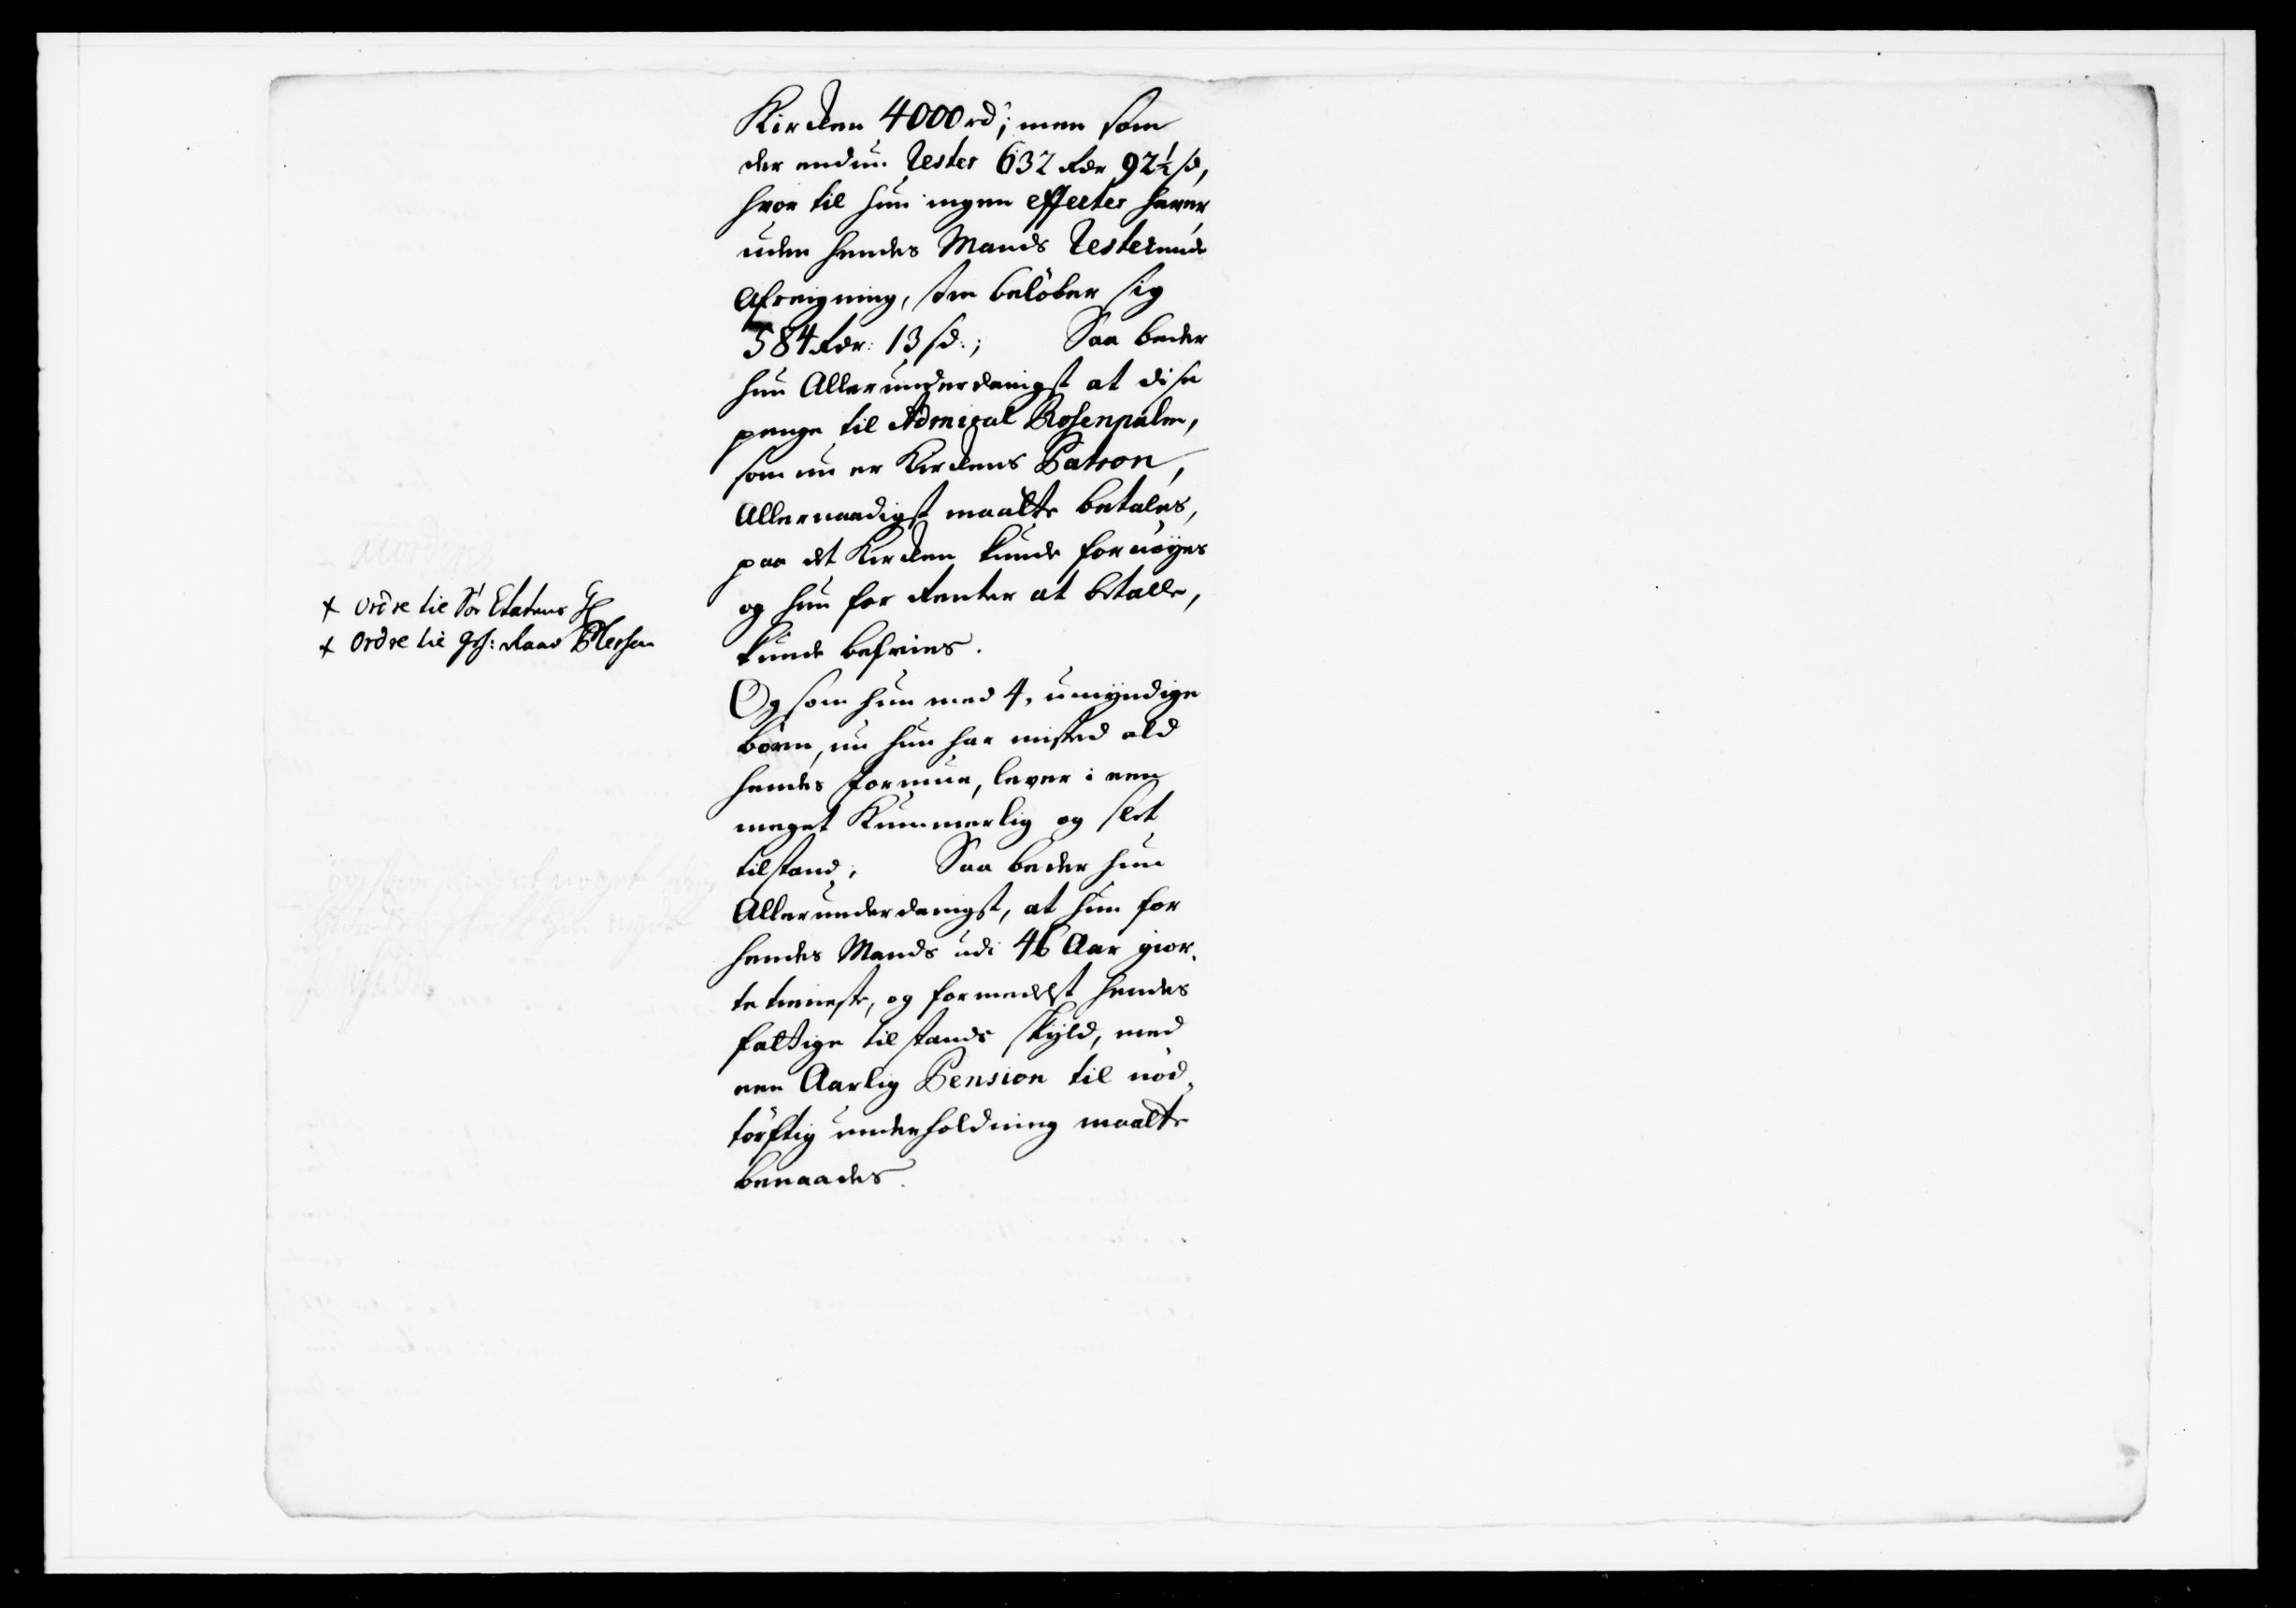 Kircken 4000 rd; men som
der endnu Rester 632 Rdr 92½ sd,
hvor til hun ingen effecter haver,
uden hendes Mands Resterende
Afreigning, som belöber sig
584 Rdr: 13 sd:; Saa beder
hun Allerunderdanigst at disse
penge til Admiral Rosenpalm,
som nu er Kirckens Patron,
Allernaadigst maatte betales,
paa det Kircken kunde fornöyes
og hun for Renter at betalle,
kunde befries.
+ Ordre til Söe Etatens
+ Ordre til Geh: Raad Plessen
Og som hun med 4, umyndige
börn, nu hun har misted ald
hendes formue, lever i een
meget Kummerlig og slet
tilstand; Saa beder hun
Allerunderdanigst, at hun for
hendes Mands udi 46 Aar gior-
te tieneste, og formedelst hendes
fattige tilstands skyld, med
een Aarlig Pension til nöd-
törftig underholdning maatte
benaades.